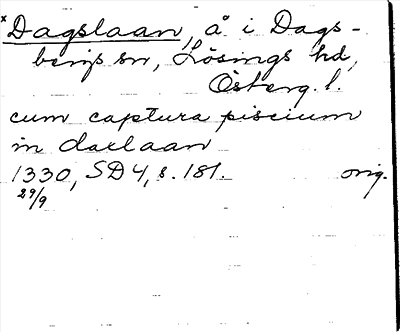 * Dagslaan, å i Dags-
bergs sn, Lösings hd,
Österg. l.
cum captura piscium
in daxlaan
1330, SD 4, s. 181. orig.
29/9